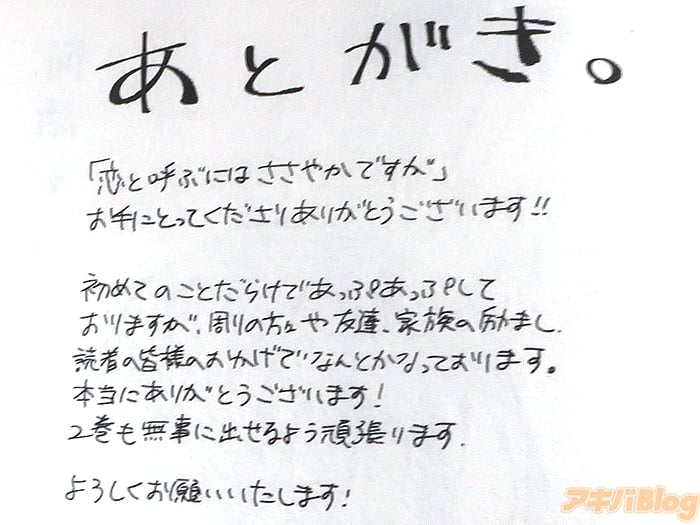 あとがき。
「恋と呼ぶにはささやかですが」
お手にとってくださりありがとうございます!!
初めてのことだらけであっぷあっぷして
おりますが、周りの方々や友達、家族の励まし、
読者の皆様のおかげでなんとかなっております。
本当にありがとうございます!
2巻も無事に出せるよう頑張ります。
よろしくお願いいたします!
アキバBlog